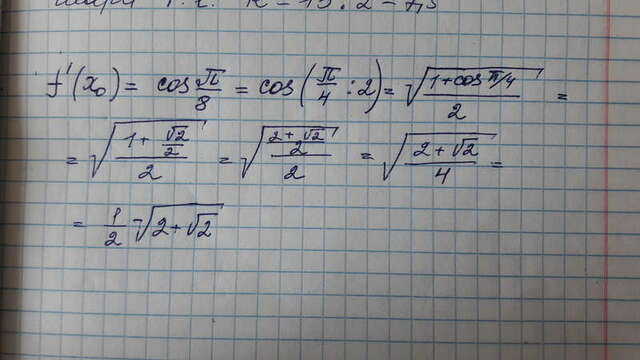 f'(x₀) = cos π/8 = cos(π/4 : 2) = √((1+cos π/4)/2) =
= √((1+√2/2)/2) = √(((2+√2)/2)/2) = √((2+√2)/4) =
= 1/2 √(2+√2)